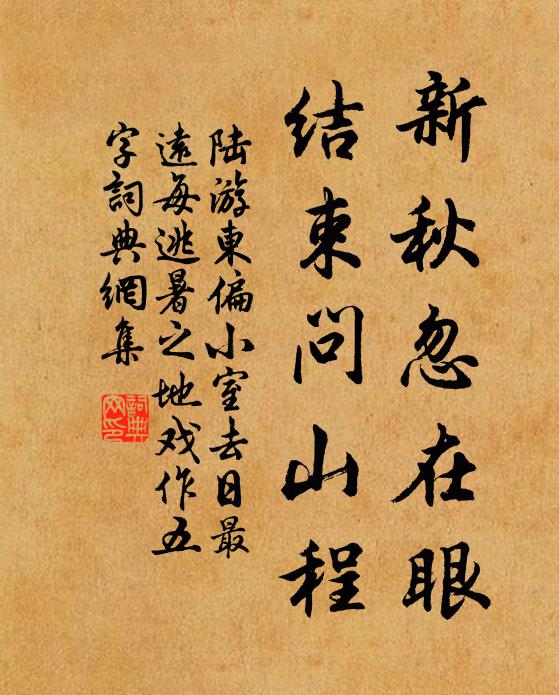 新秋忽在眼
结束问山程
陆游東偏小室去日最
遠每逃暑之地戏作五
字詞典網集
詞典
网印